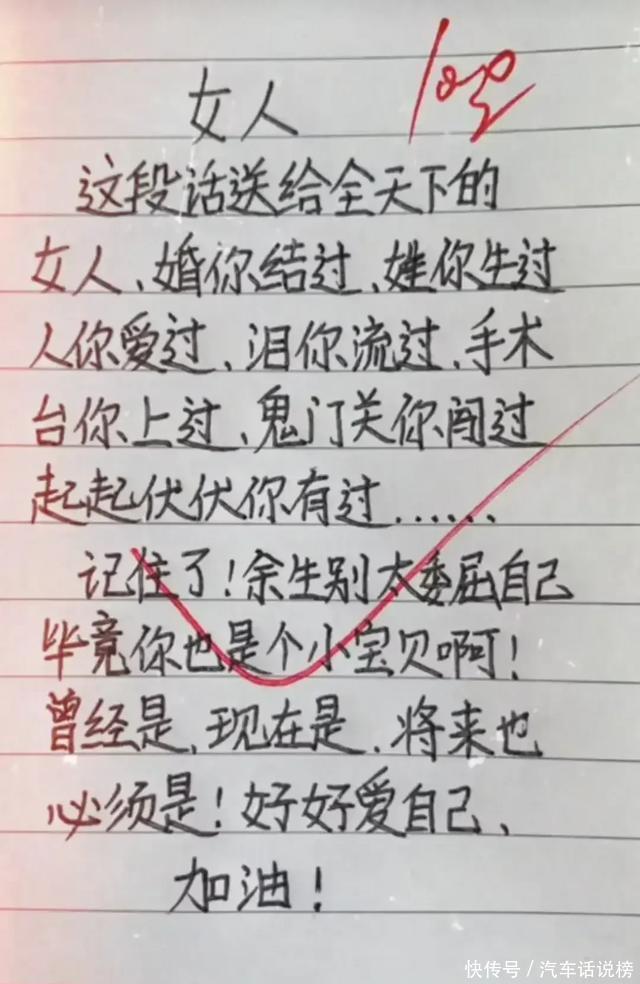 女人
100
这段话送给全天下的
女人、婚你结过、娃你生过
人你爱过、泪你流过、手术
台你上过、鬼门关你闯过
起起伏伏你有过……
记住了！余生别太委屈自己
毕竟你也是个小宝贝啊！
曾经是、现在是、将来也
必须是！好好爱自己、
加油！
快传号／汽车话说榜